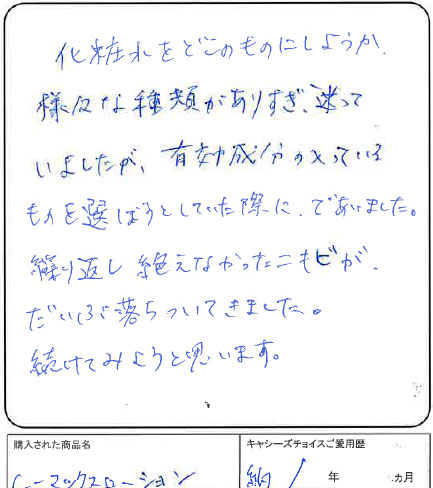 化粧水をどこのものにしようか、
様々な種類がありすぎ、迷って
いましたが、有効成分の入っている
ものを選ぼうとしていた際に、であいました。
繰り返し絶えなかったニキビが、
だいぶ落ちついてきました。
続けてみようと思います。
購入された商品名
キャシーズチョイスご愛用歴
シーマックスローション
約 1 年 ヵ月